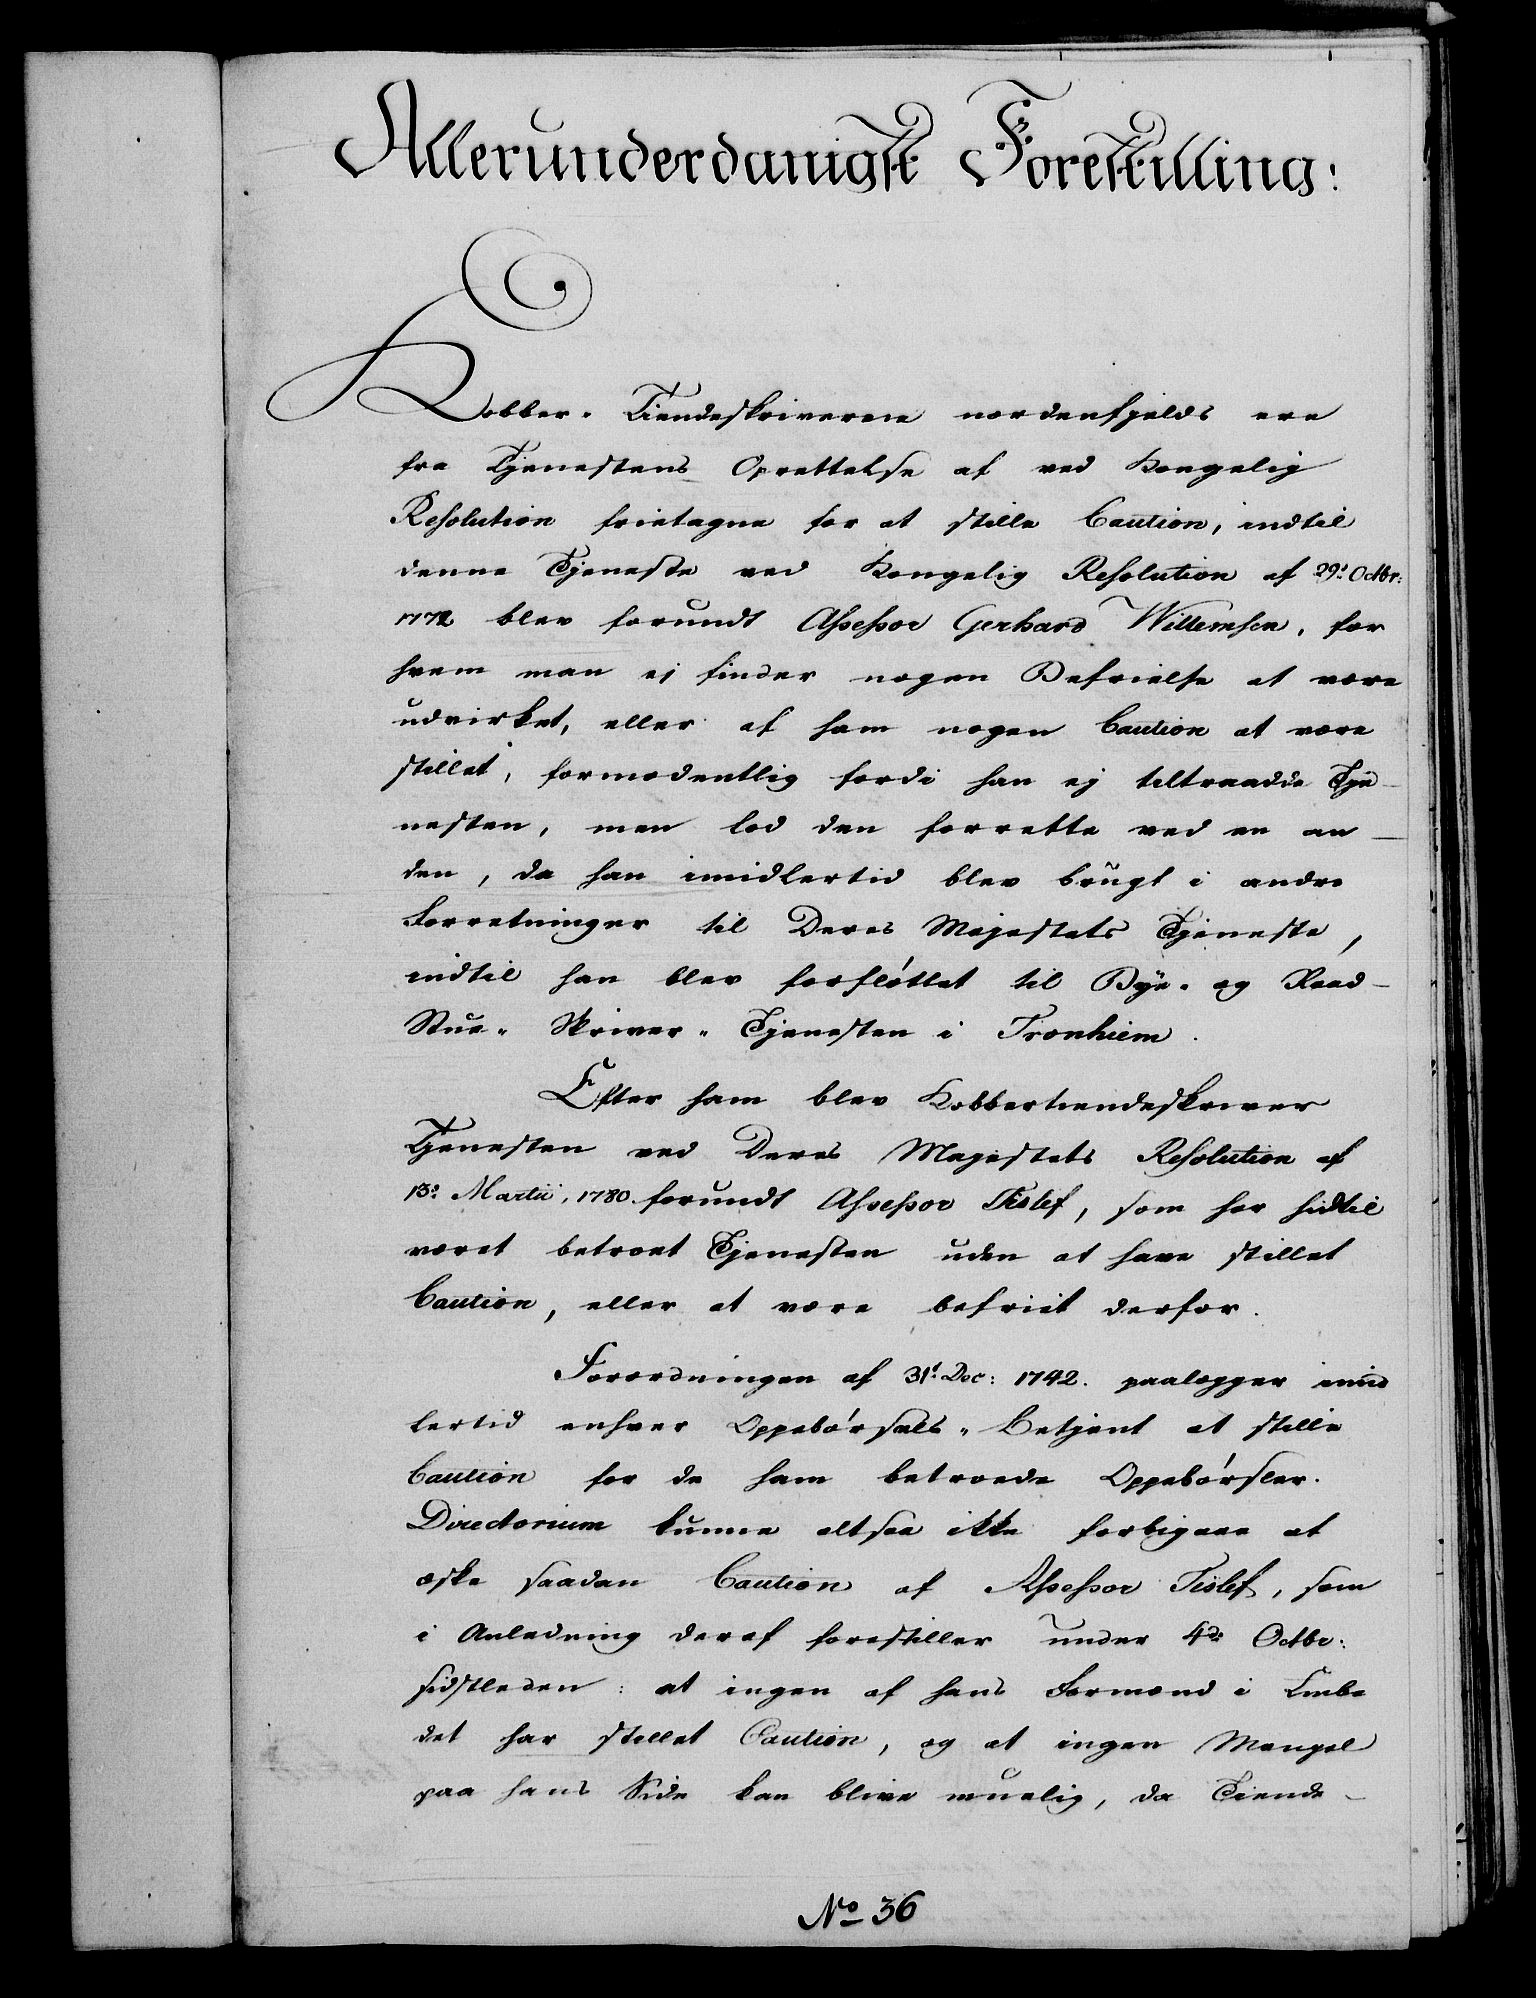 Allerunderdanigst Forestilling:
Kobber-Tiendeskriverne nordenfjelds ere
fra Tjenestens Oprettelse af ved Kongelig
Resolution fritagne for at stille Caution, indtil
denne Tjeneste ved Kongelig Resolution af 29: Octbr:
1772 blev forundt Assessor Gerhard Willemsen, for
hvem man ej finder nogen Befrielse at være
udvirket, eller af ham nogen Caution at være
stillet, formodentlig fordi han ej tiltraadde Tje-
nesten, men lod den forrette ved en an-
den, da han imidlertid blev brugt i andre
Forretninger til Deres Majestets Tjeneste,
indtil han blev forflöttet til Bye- og Raad-
Stue-Skriver-Tjenesten i Tronhiem.
Efter ham blev Kobbertiendeskriver
Tjenesten ved Deres Majestets Resolution af
13: Martii, 1780. forundt Assessor Tislef, som har hidtil
været betroet Tjenesten uden at have stillet
Caution, eller at være befriet derfor.
Forordningen af 31: Dec: 1742. paalægger imid
lertid enhver Oppebörsels-Betjent at stille
Caution for de ham betroede Oppebörsler.
Directorium kunne altsaa ikke forbigaae at
æske saadan Caution af Assessor Tislef, som
i Anledning deraf forestiller under 4de Octbr:
sidstleden: at ingen af hans Formænd i Embe
det har stillet Caution, og at ingen Mangel
paa hans Side kan blive muelig, da Tiende-
No 36